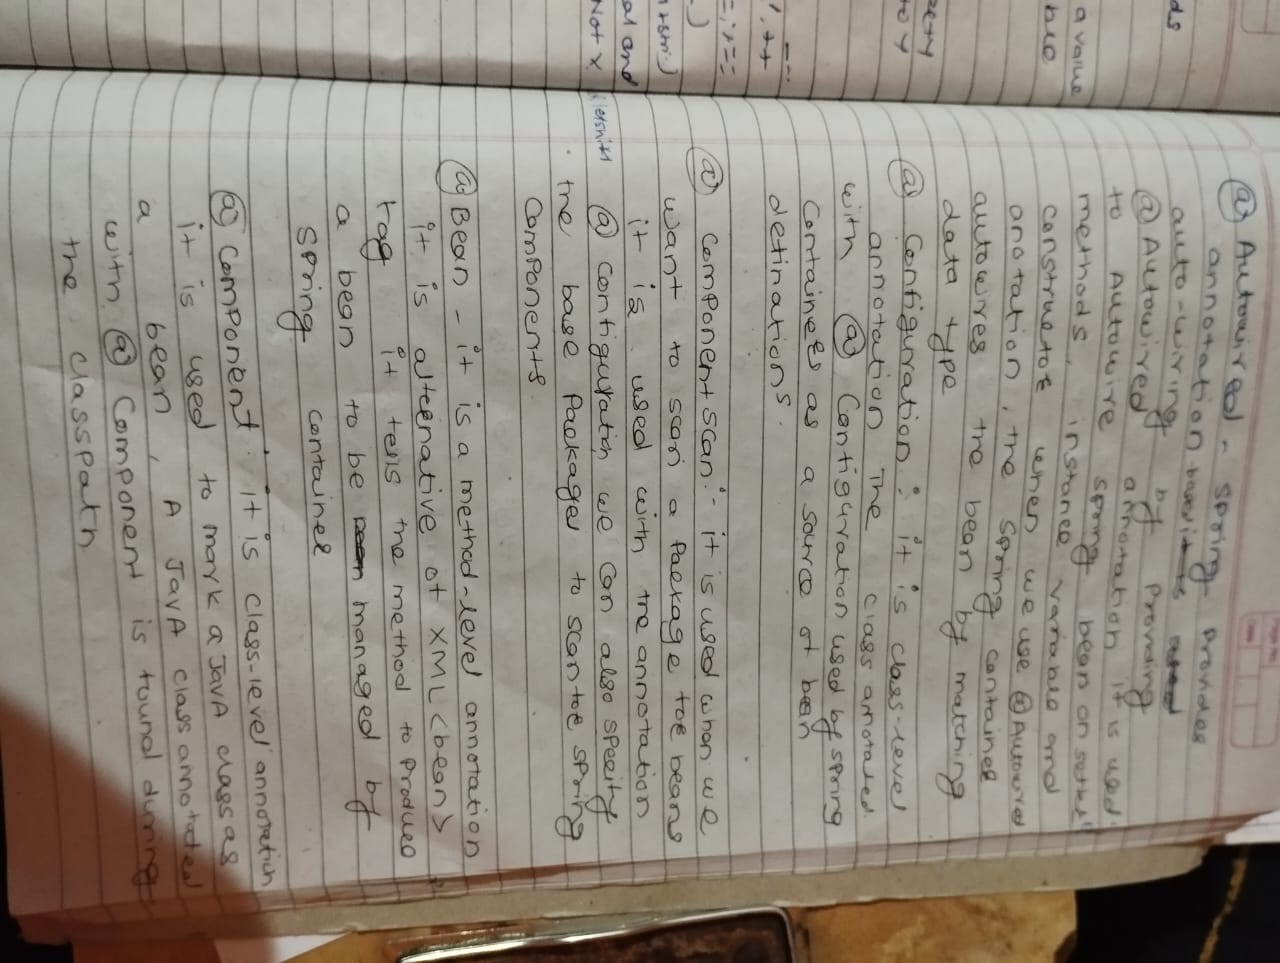 Page No.
Date
@ Autowired - Spring Provides
annotation based
auto-wiring by Providing
@ Autowired annotation it is used
to Autowire Spring bean on setter
methods, instance variable and
constructor when we use @ Autowired
anotation, the Spring container
autowires the bean by matching
data type
@ Configuration : it is class-level
annotation The class annotated
with @ Configuration used by spring
Containers as a source of bean
definations.
@ Component scan :- it is used when we
want to scan a Package for beans
it is used with the annotation
@ Configuration we can also specify
the base Packages to scan for spring
Components.
@ Bean - it is a method-level annotation
it is alternative of XML <bean>
tag it tells the method to Produce
a bean to be managed by
Spring container
@ Component : it is class-level annotation
it is used to mark a JAVA class as
a bean, A JAVA class annotated
with @ Component is found during
the classpath
ds
a value
ble
to y
al and
Not x